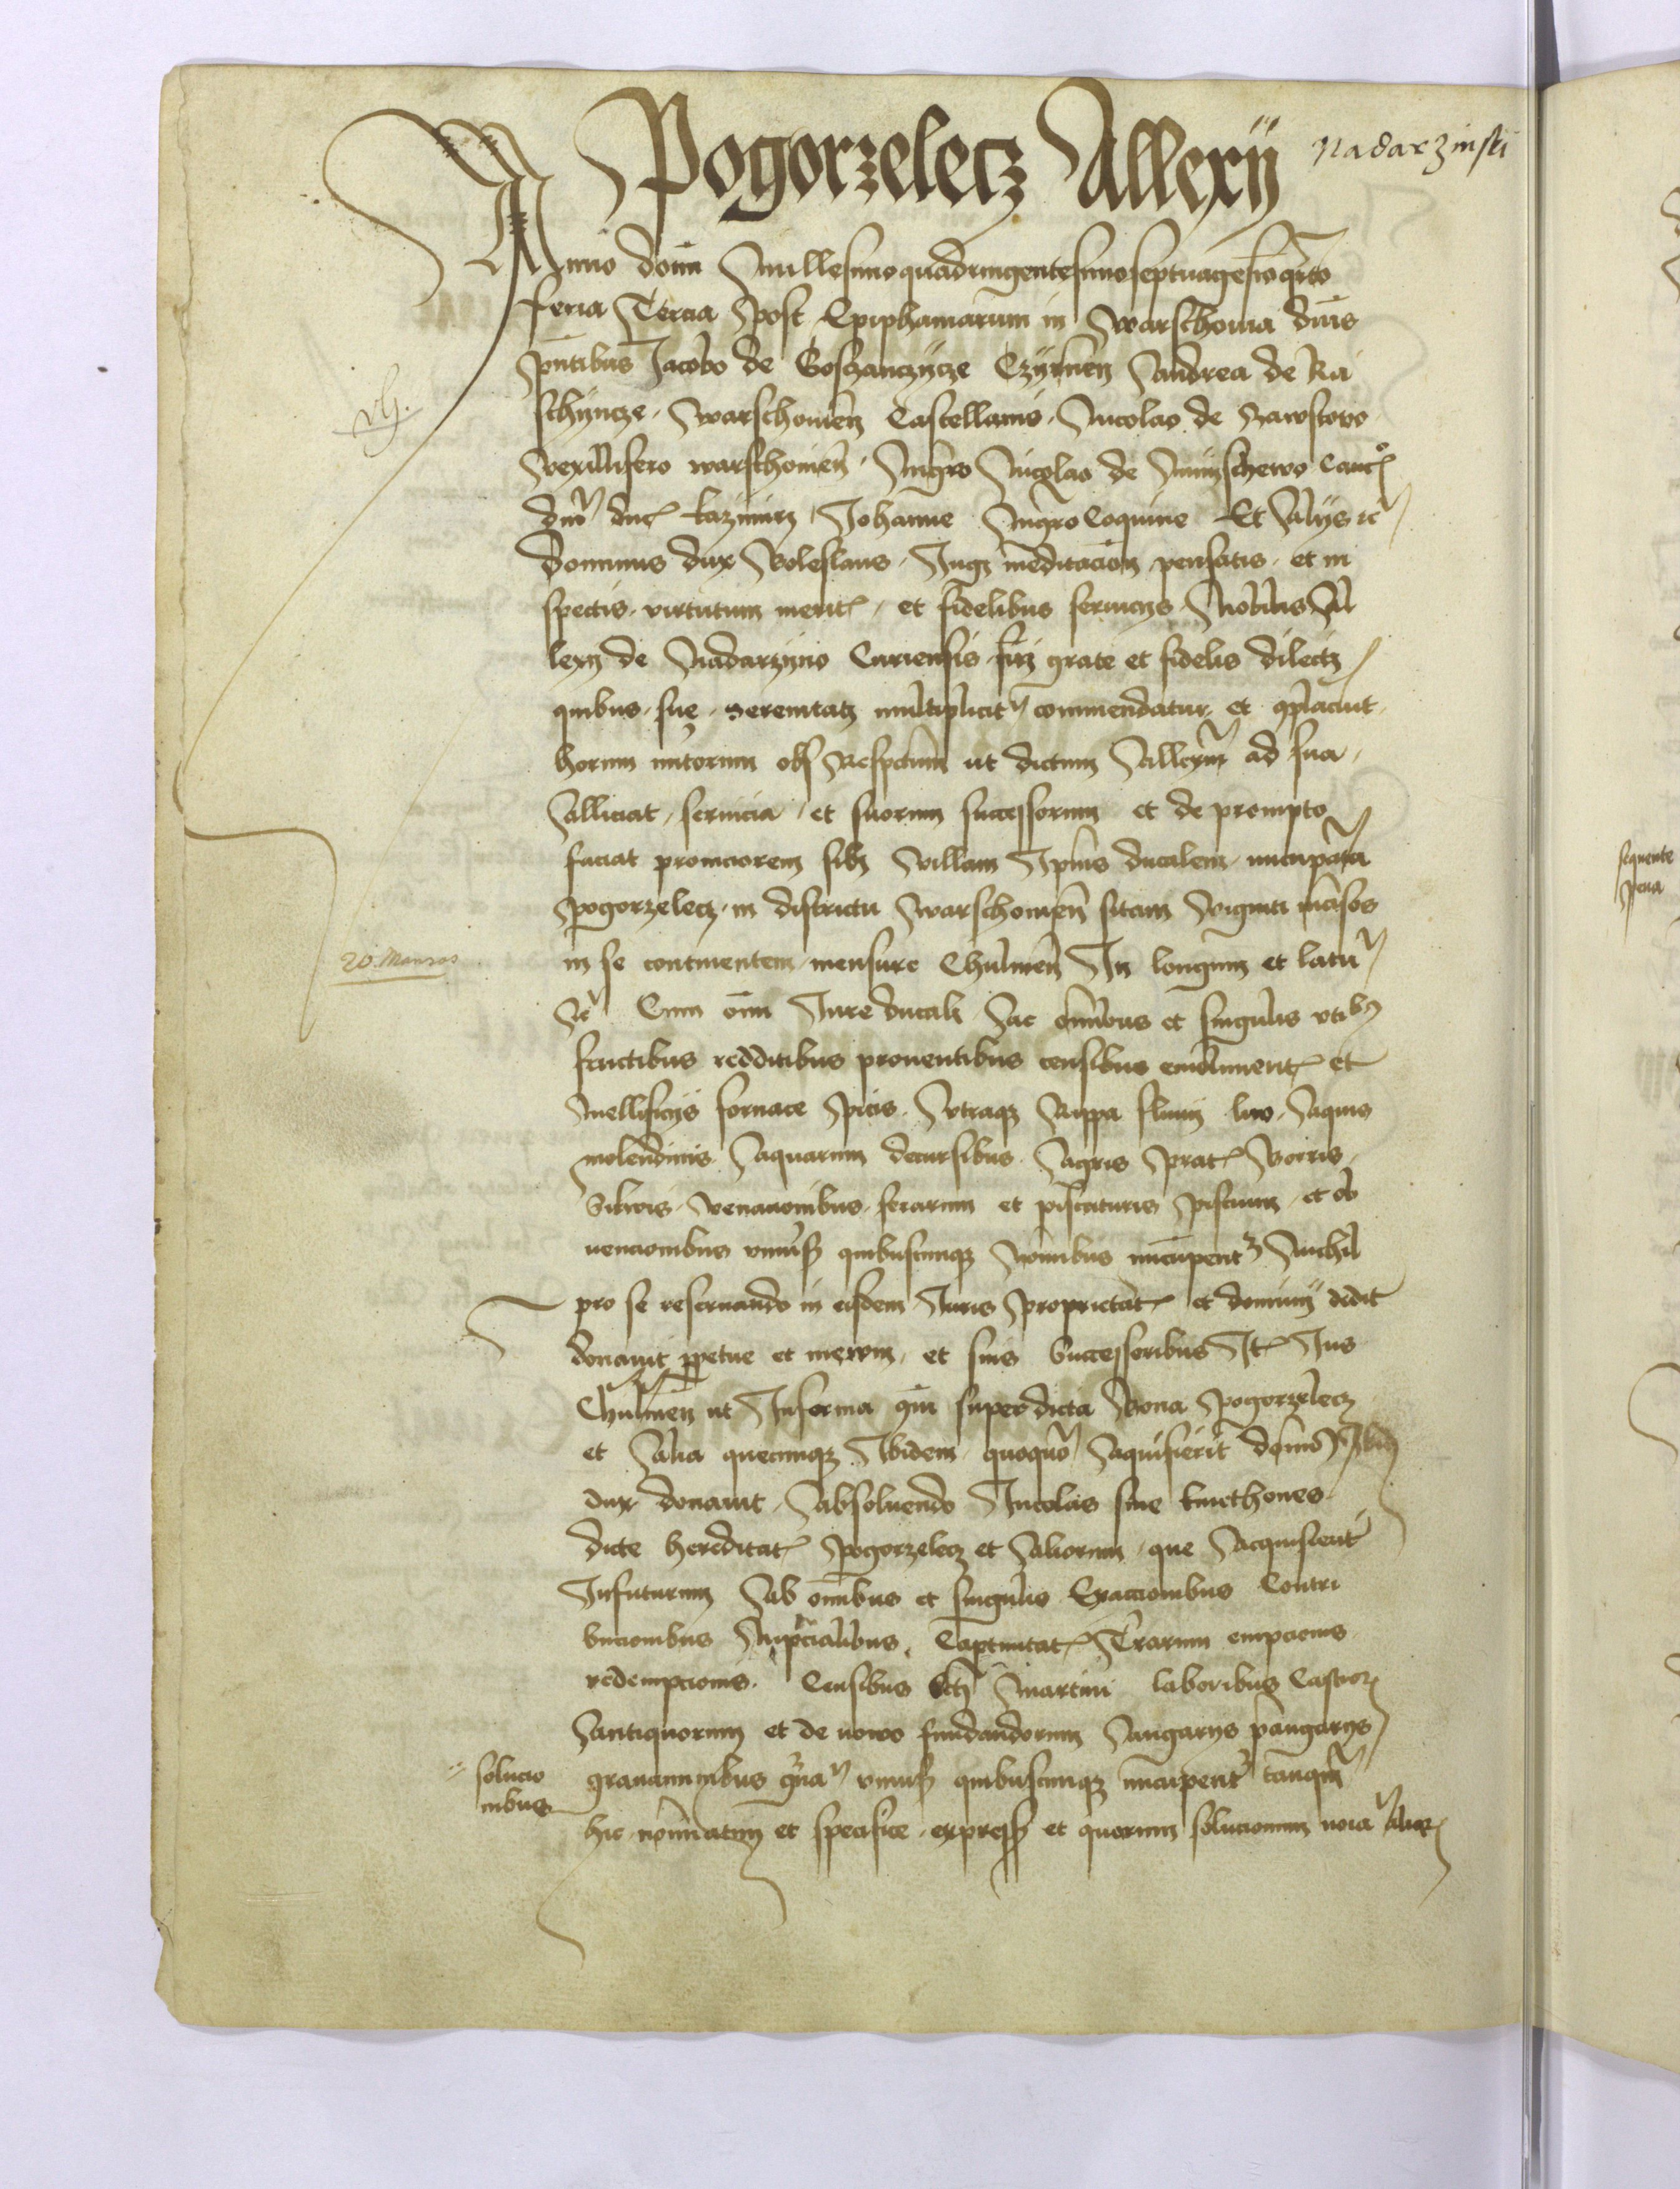 Pogorzelecz Allexij Nadarzinski
Anno domi Millesimoquadringentesimoseptuagesimoqrto
feria Tercia post Epiphaniarum in Warschouia dnis
pntibus Jacobo de Gosczanczycze Czyrnen Andrea de Ra
schyncze Warschouien Castellanis Nicolao de
Vexillifero warschouien Mgro Nicolao de Mnyschewo Canc
duc kazimirz Johanne Mgro Coquine Et Alijs
Dominus dux Boleslaus Jugi meditacion pensatis et in
spectis virtutum merit et fidelibus seruicijs Nobilis Al
lexij de Nadarzyno Curiensis sui grate et fidelis dilecti
quibus sue serenitati multiplicit commendatur et placuit
horum intorum obs Respectum ut dictum Allexium ad sua
Alliciat seruicia et suorum successorum et de prompto
faciat promciorem sibi villam Ipius ducalem nuncupata
Pogorzelecz in districtu Warschouien sitam viginti mansos
in se continentem mensure Chulmen In longum et latu
20. Mansos
Cum omi Jure ducali Ac omnibus et singulis vtib
fructibus redditibus prouentibus censibus emolument et
Mellificijs fornace picis vtraque Rippa fluuij Aquis
molendinis Aquarum decursibus Agris prat Borris
Siluis venacionibus ferarum et piscaturis piscium et ob
uencionibus vniuersis quibuscunque Nominibus nuncupent Nichil
pro se reseruando in eisdem Juris proprietat et dominij dedit
donauit ppetue et in ewm et suis Successoribus It Jus
Chulmen ut In forma qui superdicta Bona Pogorzelecz
et Alia quecunque Ibidem quoquo Aquisierit domis Ibid
dux donauit Absoluendo Incolas siue kmethones
dicte hereditat Pogorzelecz et Aliorum que Acquisierit
Infuturum Ab omnibus et singulis Exaccionibus Contri
bucionibus Nupcialibus Captiuitat Trarum empcionis
redempcionis Censibus Sti Martini laboribus Castror
Antiquorum et de nowo fundandorum Angarijs pangarijs
solucio
nibus
grauaminibus vniuersis quibuscunque nuncupent tanqm
hic nominatim et specifice express et quorum solucionum noia Alior